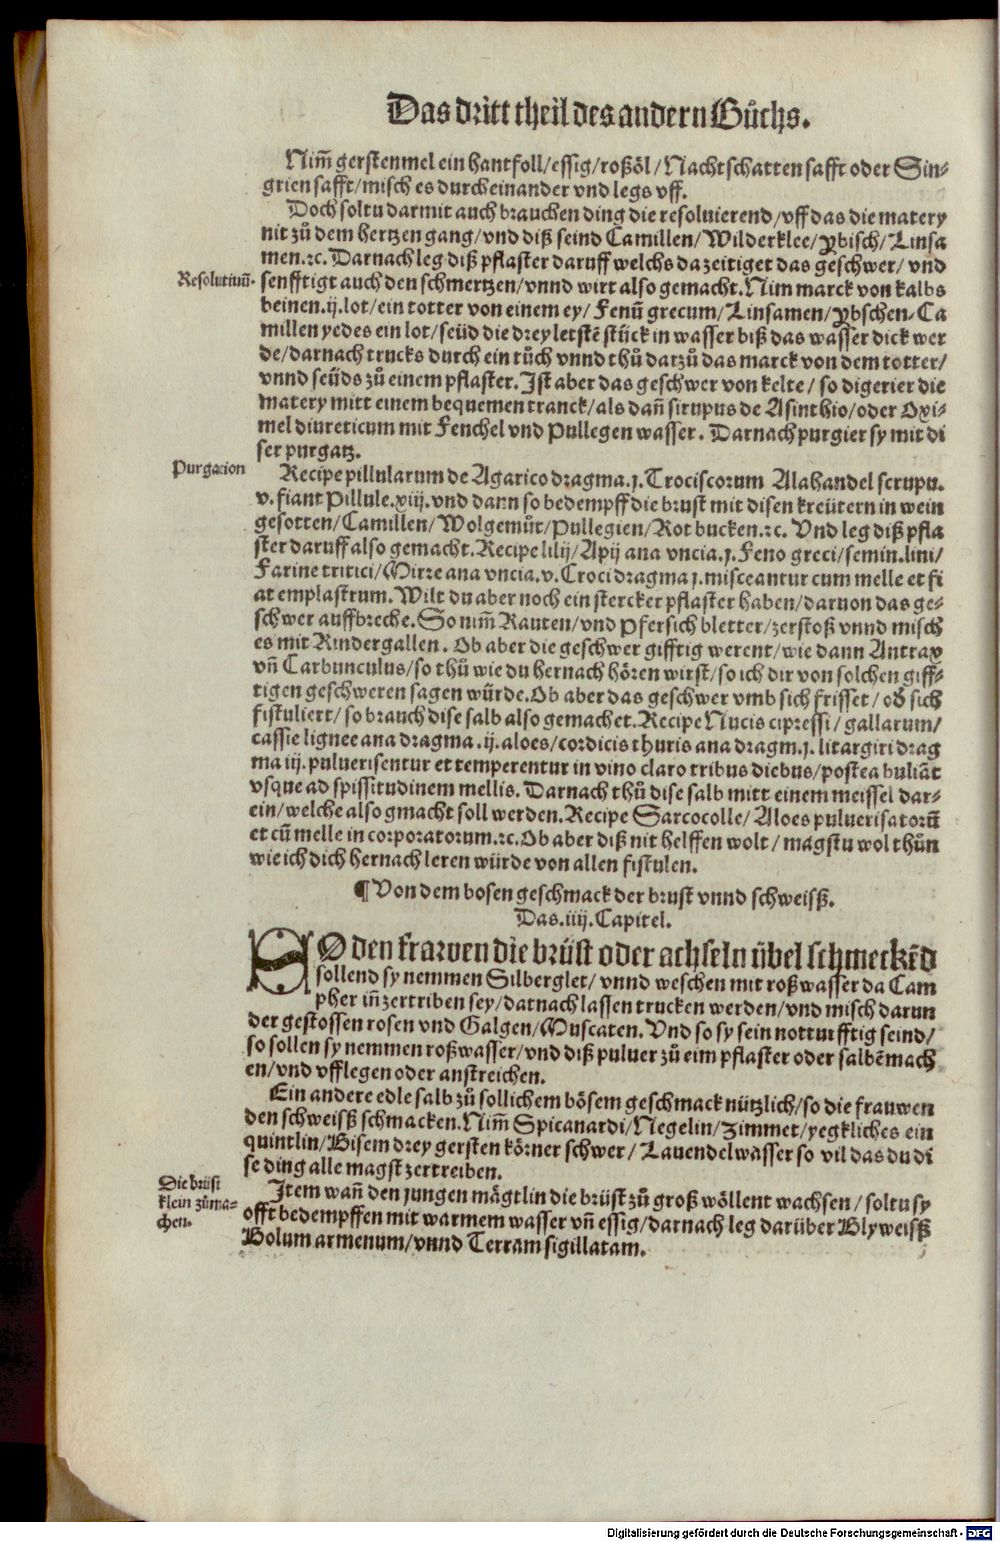 Das dritt theil des andern Bůchs.
Nim̃ gerstenmel ein hantfoll/ essig/ roßöl/ Nachtschatten safft oder Sin-
grien safft/ misch es durch einander vnd legs vff.
Doch soltu darmit auch brauchen ding die resoluierend/ vff das die matery
nit zů dem hertzen gang/ vnd diß seind Camillen/ Wilderklee/ Ybisch/ Linsa
men.⁊c. Darnach leg diß pflaster daruff welchs da zeitiget das geschwer/ vnd
Resolutiuũ.
senfftigt auch den schmertzen/ vnnd wirt also gemacht. Nim marck von kalbs
beinen.ij.lot/ ein totter von einem ey/ Fenũ grecum/ Linsamen/ Ybschen/ Ca
millen yedes ein lot/ seüd die drey letstẽ stück in wasser biß das wasser dick wer
de/ darnach trucks durch ein tůch vnnd thů darzů das marck von dem totter/
vnnd seüds zů einem pflaster. Ist aber das geschwer von kelte/ so digerier die
matery mitt einem bequemen tranck/ als dañ sirupus de Asinthio/ oder Oxi-
mel diureticum mit Fenchel vnd Pullegen wasser. Darnach purgier sy mit di
ser purgatz.
Purgacion
Recipe pillularum de Agarico dragma.j. Trociscorum Alahandel scrupu.
v. fiant Pillule.xiij. vnd dann so bedempff die brust mit disen kreütern in wein
gesotten/ Camillen/ Wolgemůt/ Pullegien/ Rot bucken.⁊c. Vnd leg diß pfla
ster daruff also gemacht. Recipe lilij/ Apij ana vncia.j. Feno greci/ semin.lini/
Farine tritici/ Mirre ana vncia.v. Croci dragma j. misceantur cum melle et fi
at emplastrum. Wilt du aber noch ein stercker pflaster haben/ daruon das ge-
schwer auffbreche. So nim̃ Rauten/ vnd Pfersich bletter/ zerstoß vnnd misch
es mit Rindergallen. Ob aber die geschwer gifftig werent/ wie dann Antrax
vñ Carbunculus/ so thů wie du hernach hören wirst/ so ich dir von solchen giff-
tigen geschweren sagen würde. Ob aber das geschwer vmb sich frisset/ od̃ sich
fistuliert/ so brauch dise salb also gemachet. Recipe Nucis cipressi/ gallarum/
cassie lignee ana dragma.ij. aloes/ cordicis thuris ana dragm.j. litargiri drag
ma iij. puluerisentur et temperentur in vino claro tribus diebus/ postea buliãt
vsque ad spissitudinem mellis. Darnach thů dise salb mitt einem meissel dar-
ein/ welche also gmacht soll werden. Recipe Sarcocolle/ Aloes puluerisatorũ
et cũ melle in corporatorum.⁊c. Ob aber diß nit helffen wolt/ magstu wol thůn
wie ich dich hernach leren würde von allen fistulen.
¶ Von dem bosen geschmack der brust vnnd schweisß.
Das.iiij.Capitel.
SO den frawen die brüst oder achseln übel schmeckẽd
sollend sy nemmen Silberglet/ vnnd weschen mit roßwasser da Cam
pher iñ zertriben sey/ darnach lassen trucken werden/ vnd misch darun
der gestossen rosen vnd Galgen/ Muscaten. Vnd so sy sein notturfftig seind/
so sollen sy nemmen roßwasser/ vnd diß puluer zů eim pflaster oder salbẽ mach
en/ vnd vfflegen oder anstreichen.
Ein andere edle salb zů sollichem bösem geschmack nützlich/ so die frauwen
den schweisß schmacken. Nim̃ Spicanardi/ Negelin/ Zimmet/ yegkliches ein
quintlin/ Bisem drey gersten körner schwer/ Lauendelwasser so vil das du di
se ding alle magst zertreiben.
Die brüst
klein zůma-
chen.
Item wañ den jungen mägtlin die brüst zů groß wöllent wachsen/ soltu sy
offt bedempffen mit warmem wasser vñ essig/ darnach leg darüber Blyweisß
Bolum armenum/ vnnd Terram sigillatam.
Digitalisierung gefördert durch die Deutsche Forschungsgemeinschaft - DFG